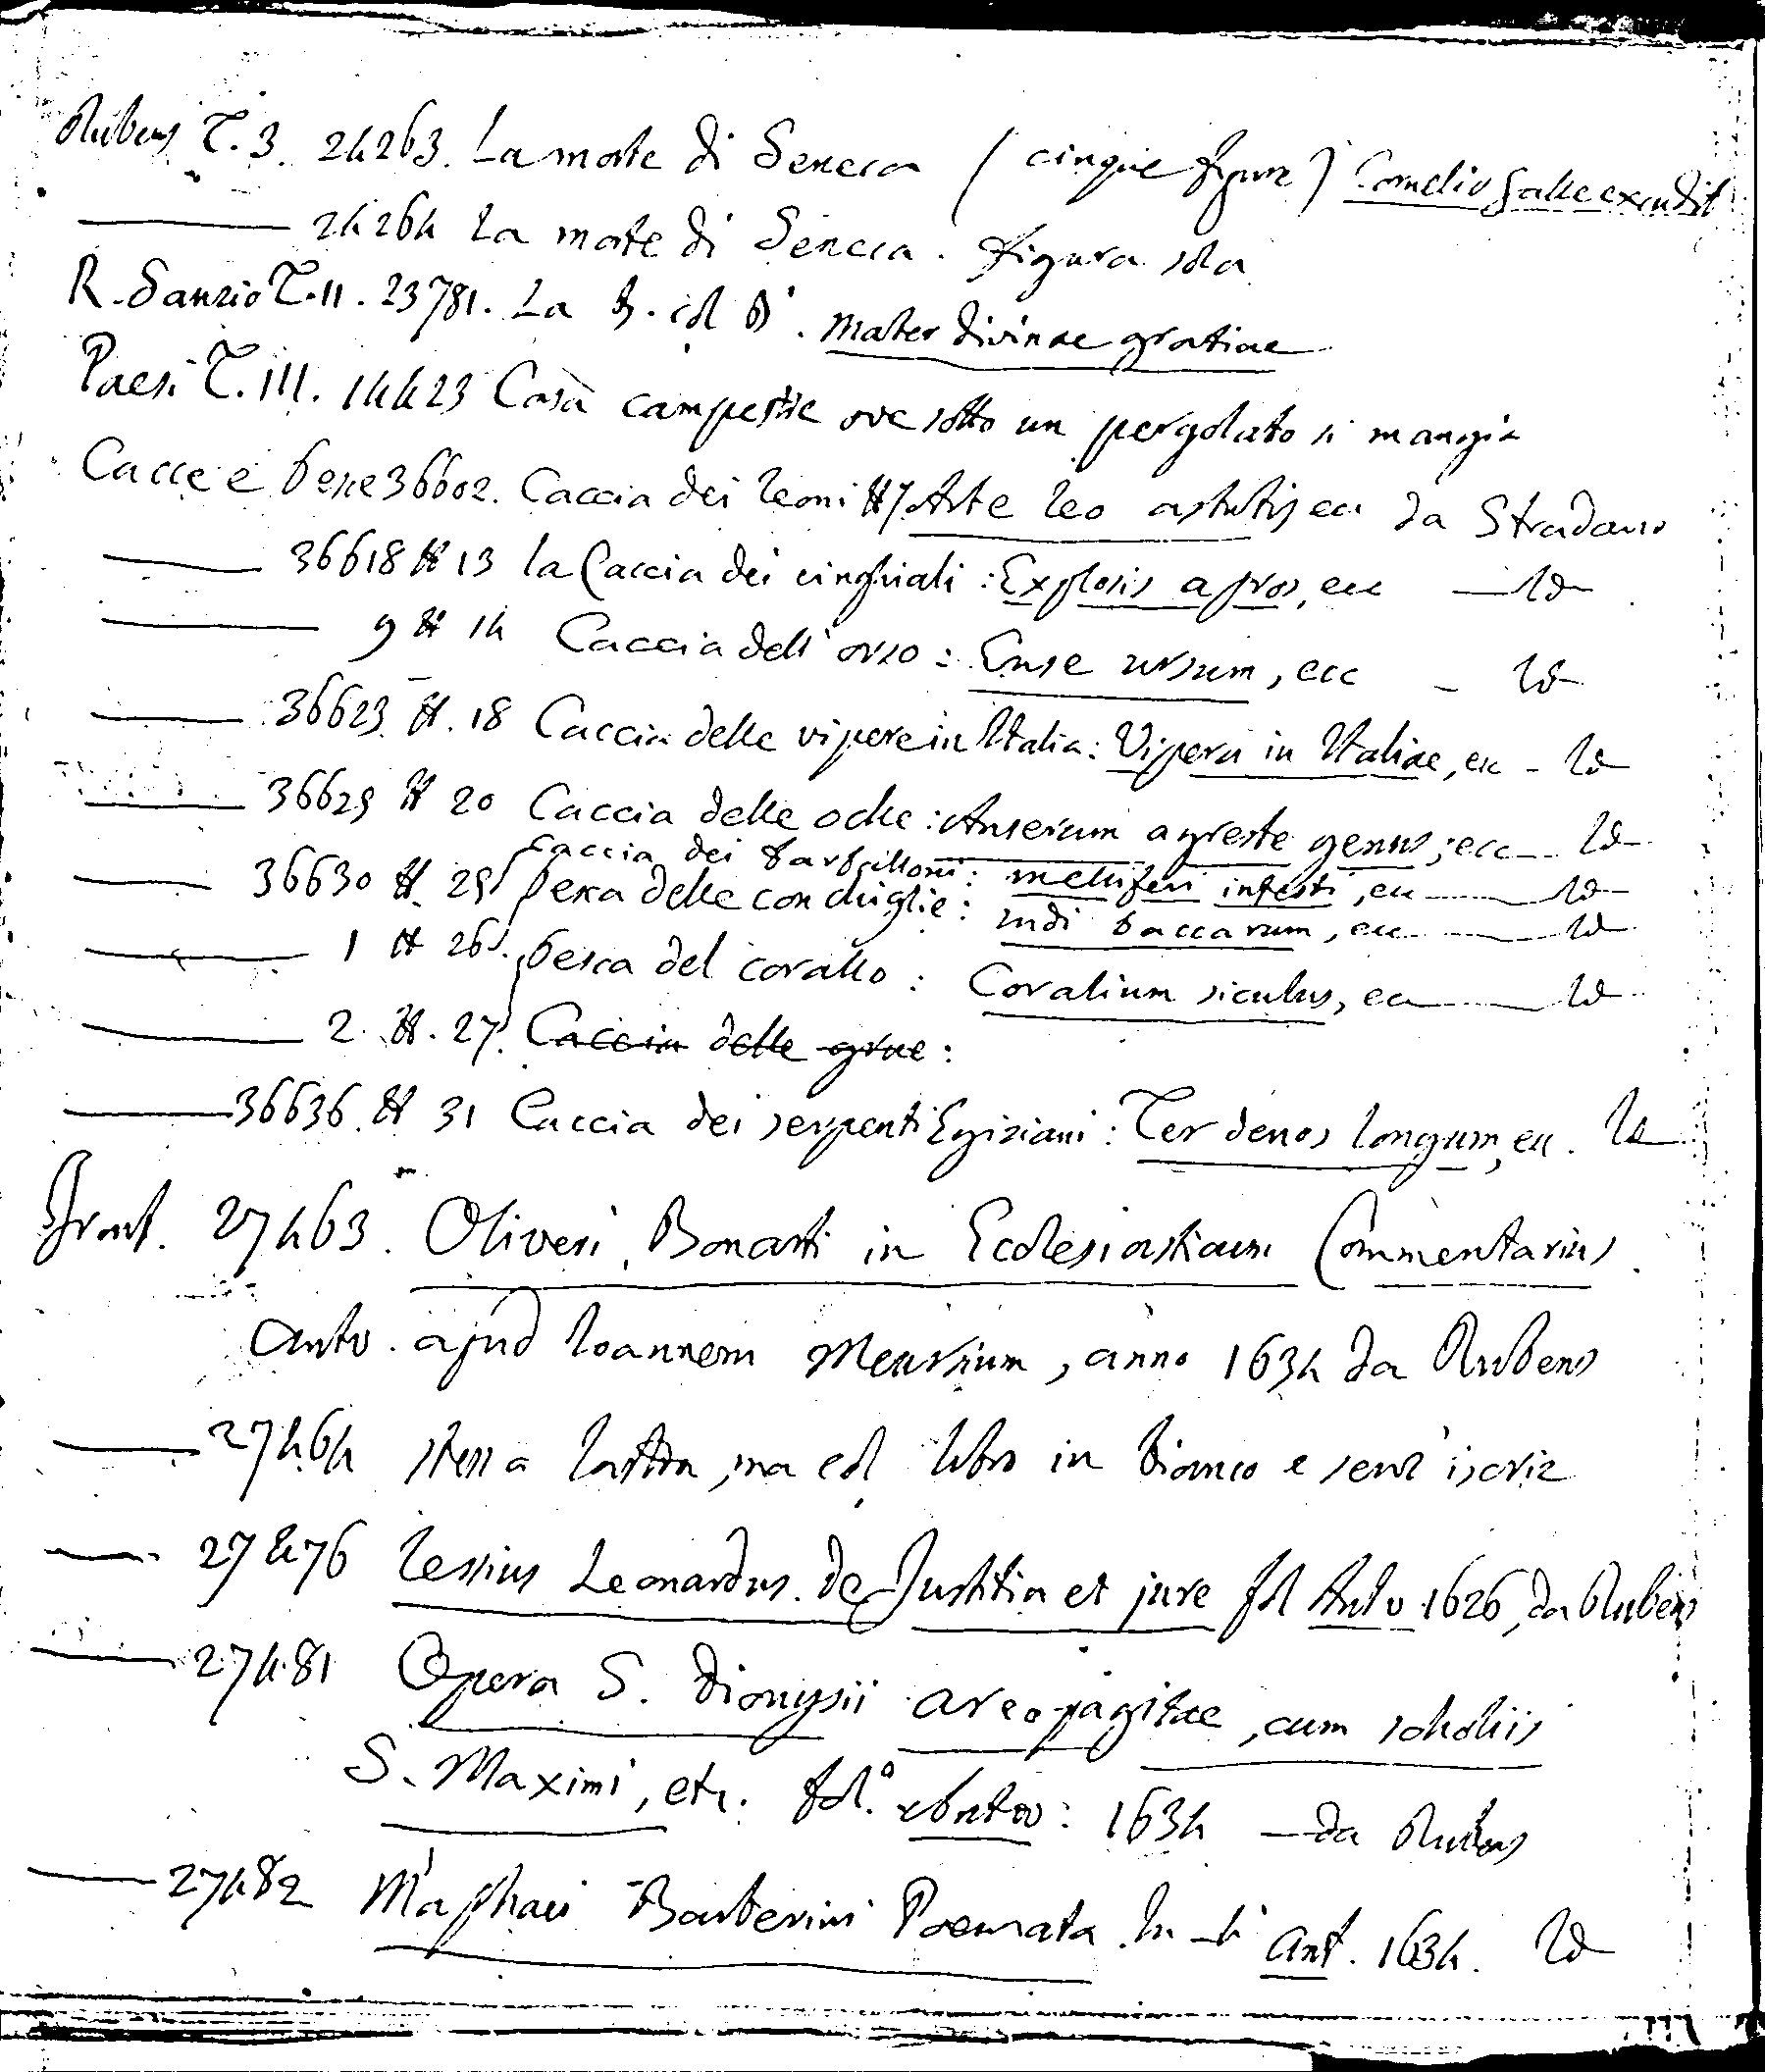 Rubens T. 3. 24263. La morte di Seneca (cinque figure) Cornelio Galle excudit
24264 La morte di Seneca. figura sola
R. Sanzio T. II. 23781. La B. col B. Mater divinae gratiae
Paesi T. III. 14423 Casa campestre ove sotto un pergolato si mangia
Cacce e pesce 36602. Caccia dei leoni N 7 Arte leo astutis ecc da Stradano
36618 N 13 la Caccia dei cinghiali: Explosis apros, ecc Id
9 N 14 Caccia dell'orso: Ense ursum, ecc - Id
36623 N. 18 Caccia delle vipere in Italia: Vipera in Italiae, ecc - Id
36625 N 20 Caccia delle oche: Anserum agreste genus, ecc Id
Caccia dei Parpilloni: melliferi infesti, ecc Id
36630 N. 25 Pesca delle conchiglie: Indi baccarum, ecc Id
1 N 26. Pesca del corallo: Coralium siculus, ecc Id
2 N. 27. Caccia delle grue:
36636. N 31 Caccia dei serpenti Egiziani: Ter denos longum, ecc. Id
Front. 27463. Oliveri Bonarti in Ecclesiasticum Commentarius.
Antv. apud Ioannem Meursium, anno 1634 da Rubens
27464 stessa lastra, ma col libro in bianco e senz'iscriz
27476 Lessius Leonardus. De Justitia et jure fol Antv. 1626, da Rubens
27481 Opera S. Dionysii areopagitae, cum scholiis
S. Maximi, etc. fol.° Antv: 1634 - da Rubens
27482 Maphaei Barberini Poemata. In-4° Ant. 1634. Id